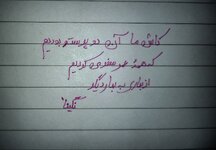 کاش ما آن دو پرستو بودیم
که همه عمر سفر می کردیم
از بهاری به بهار دیگر